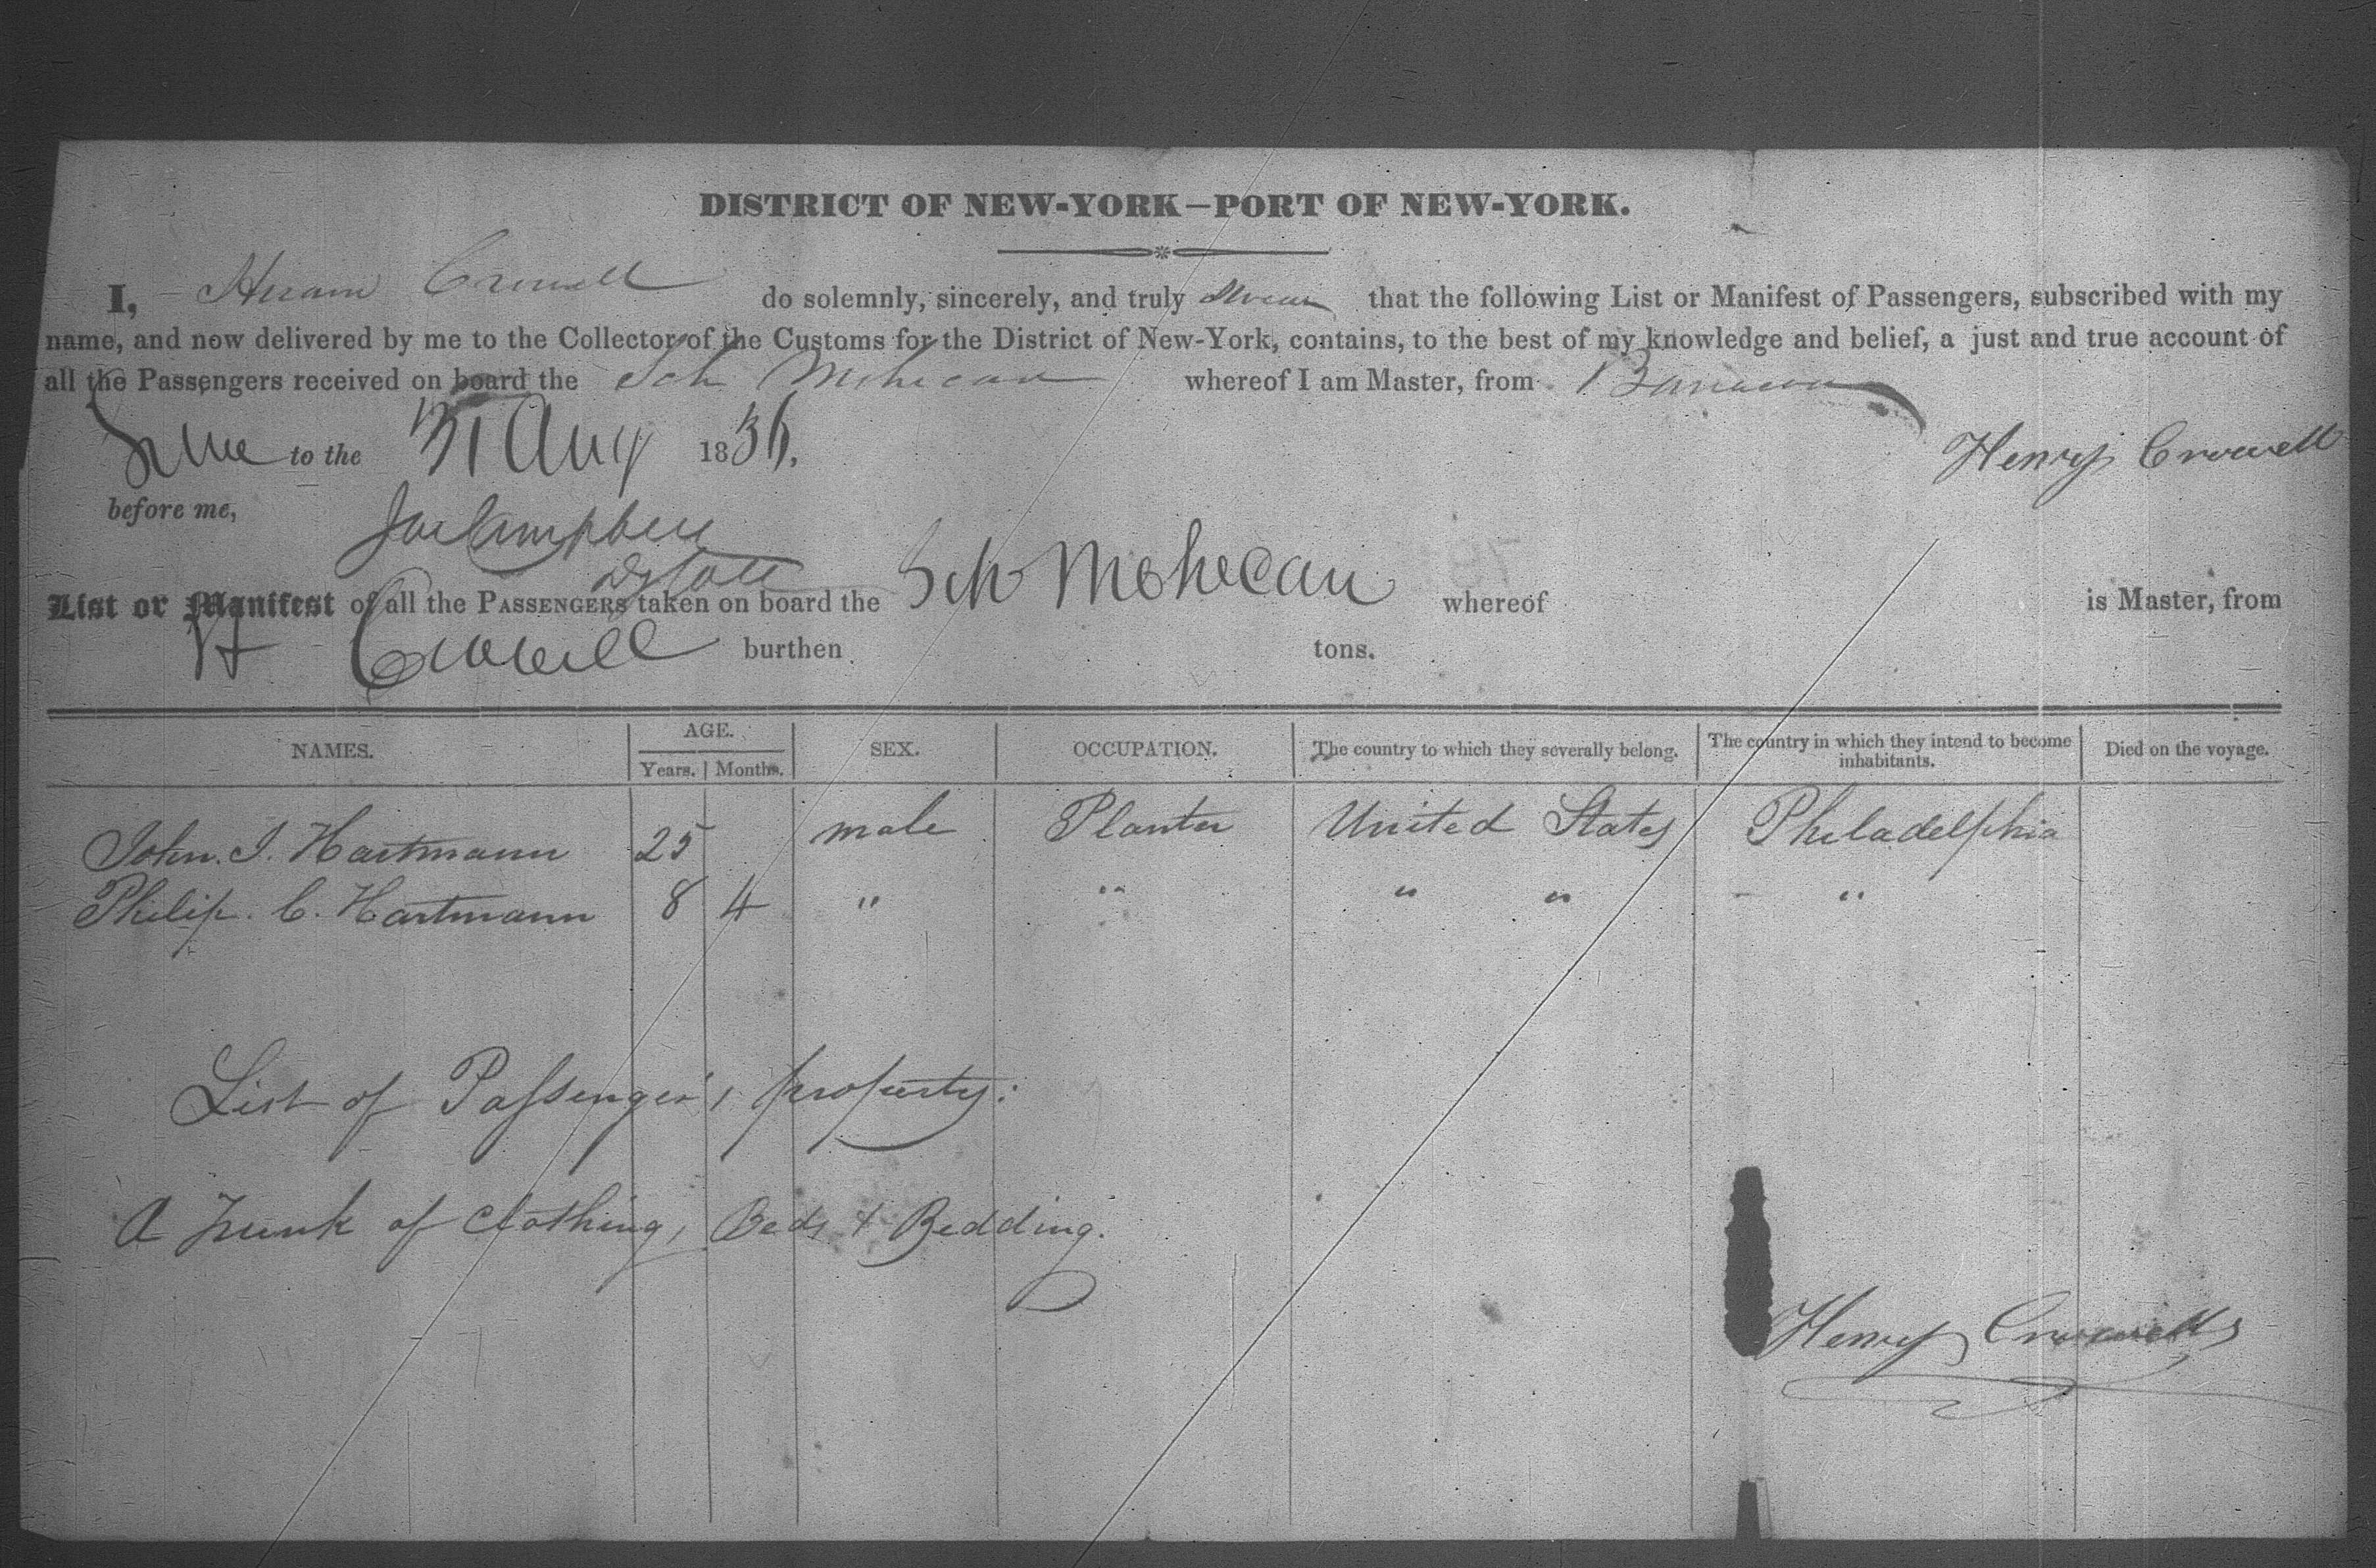 DISTRICT OF NEW-YORK—PORT OF NEW-YORK.
I, Hiram Crowell do solemnly, sincerely, and truly swear that the following List or Manifest of Passengers, subscribed with my
name, and now delivered by me to the Collector of the Customs for the District of New-York, contains, to the best of my knowledge and belief, a just and true account of
all the Passengers received on board the Sch Mohecan whereof I am Master, from
to the 31 Aug 1836.
Henry Crowell
before me,
Campbell
List or Manifest of all the PASSENGERS taken on board the Sch Mohecan whereof is Master, from
H Crowell burthen tons.
NAMES. AGE. Years. Months. SEX. OCCUPATION. The country to which they severally belong. The country in which they intend to become inhabitants. Died on the voyage.
John. J. Hartmann 25 male Planter United States Philadelphia
Philip. C. Hartmann 8 4 " " " " "
List of Passenger's property:
A Trunk of Clothing, Beds & Bedding.
Henry Crowell